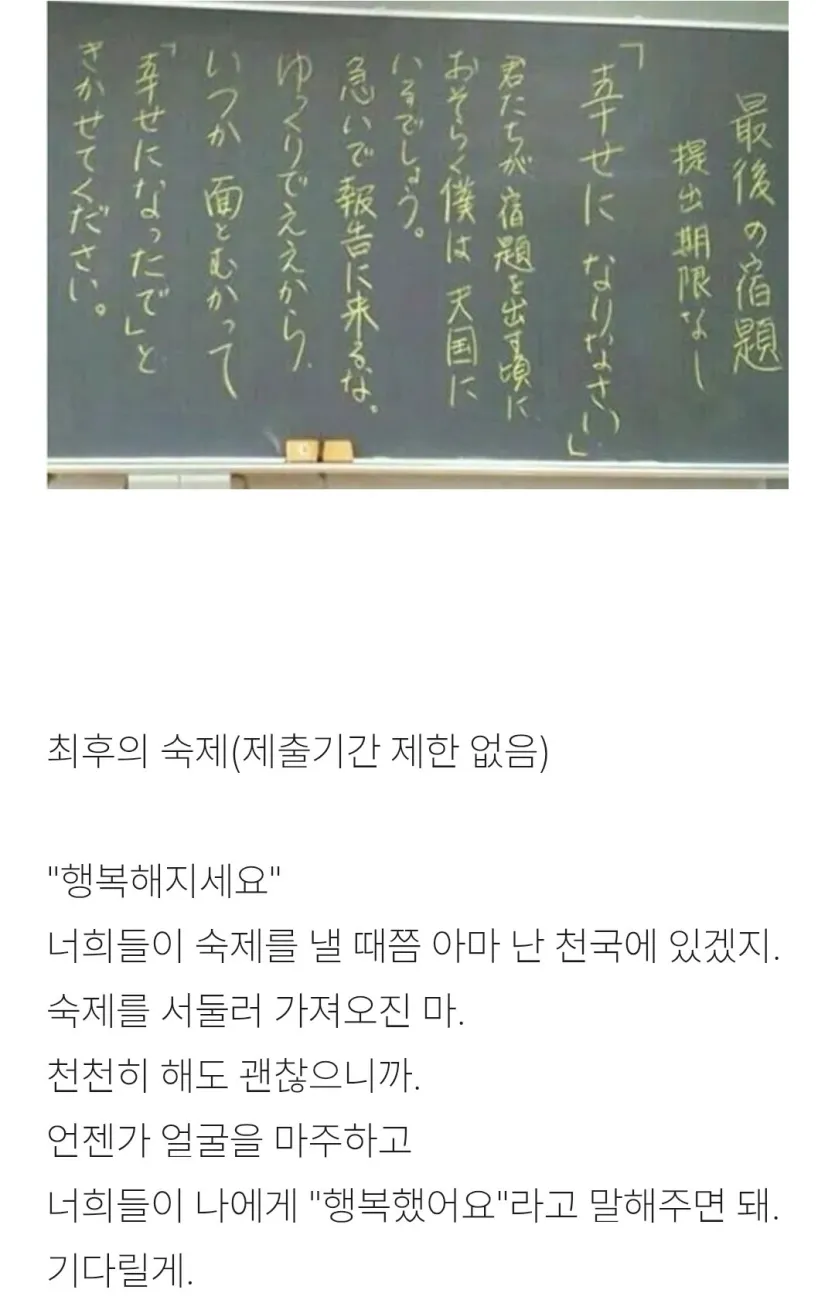 最後の宿題
提出期限なし
「幸せに なりなさい」
君たちが宿題を出す頃に、
おそらく僕は 天国に
いるでしょう。
急いで報告に来るな。
ゆっくりでええから、
いつか 面とむかって
「幸せになったで」と
きかせてください。
최후의 숙제(제출기간 제한 없음)
"행복해지세요"
너희들이 숙제를 낼 때쯤 아마 난 천국에 있겠지.
숙제를 서둘러 가져오진 마.
천천히 해도 괜찮으니까.
언젠가 얼굴을 마주하고
너희들이 나에게 "행복했어요"라고 말해주면 돼.
기다릴게.